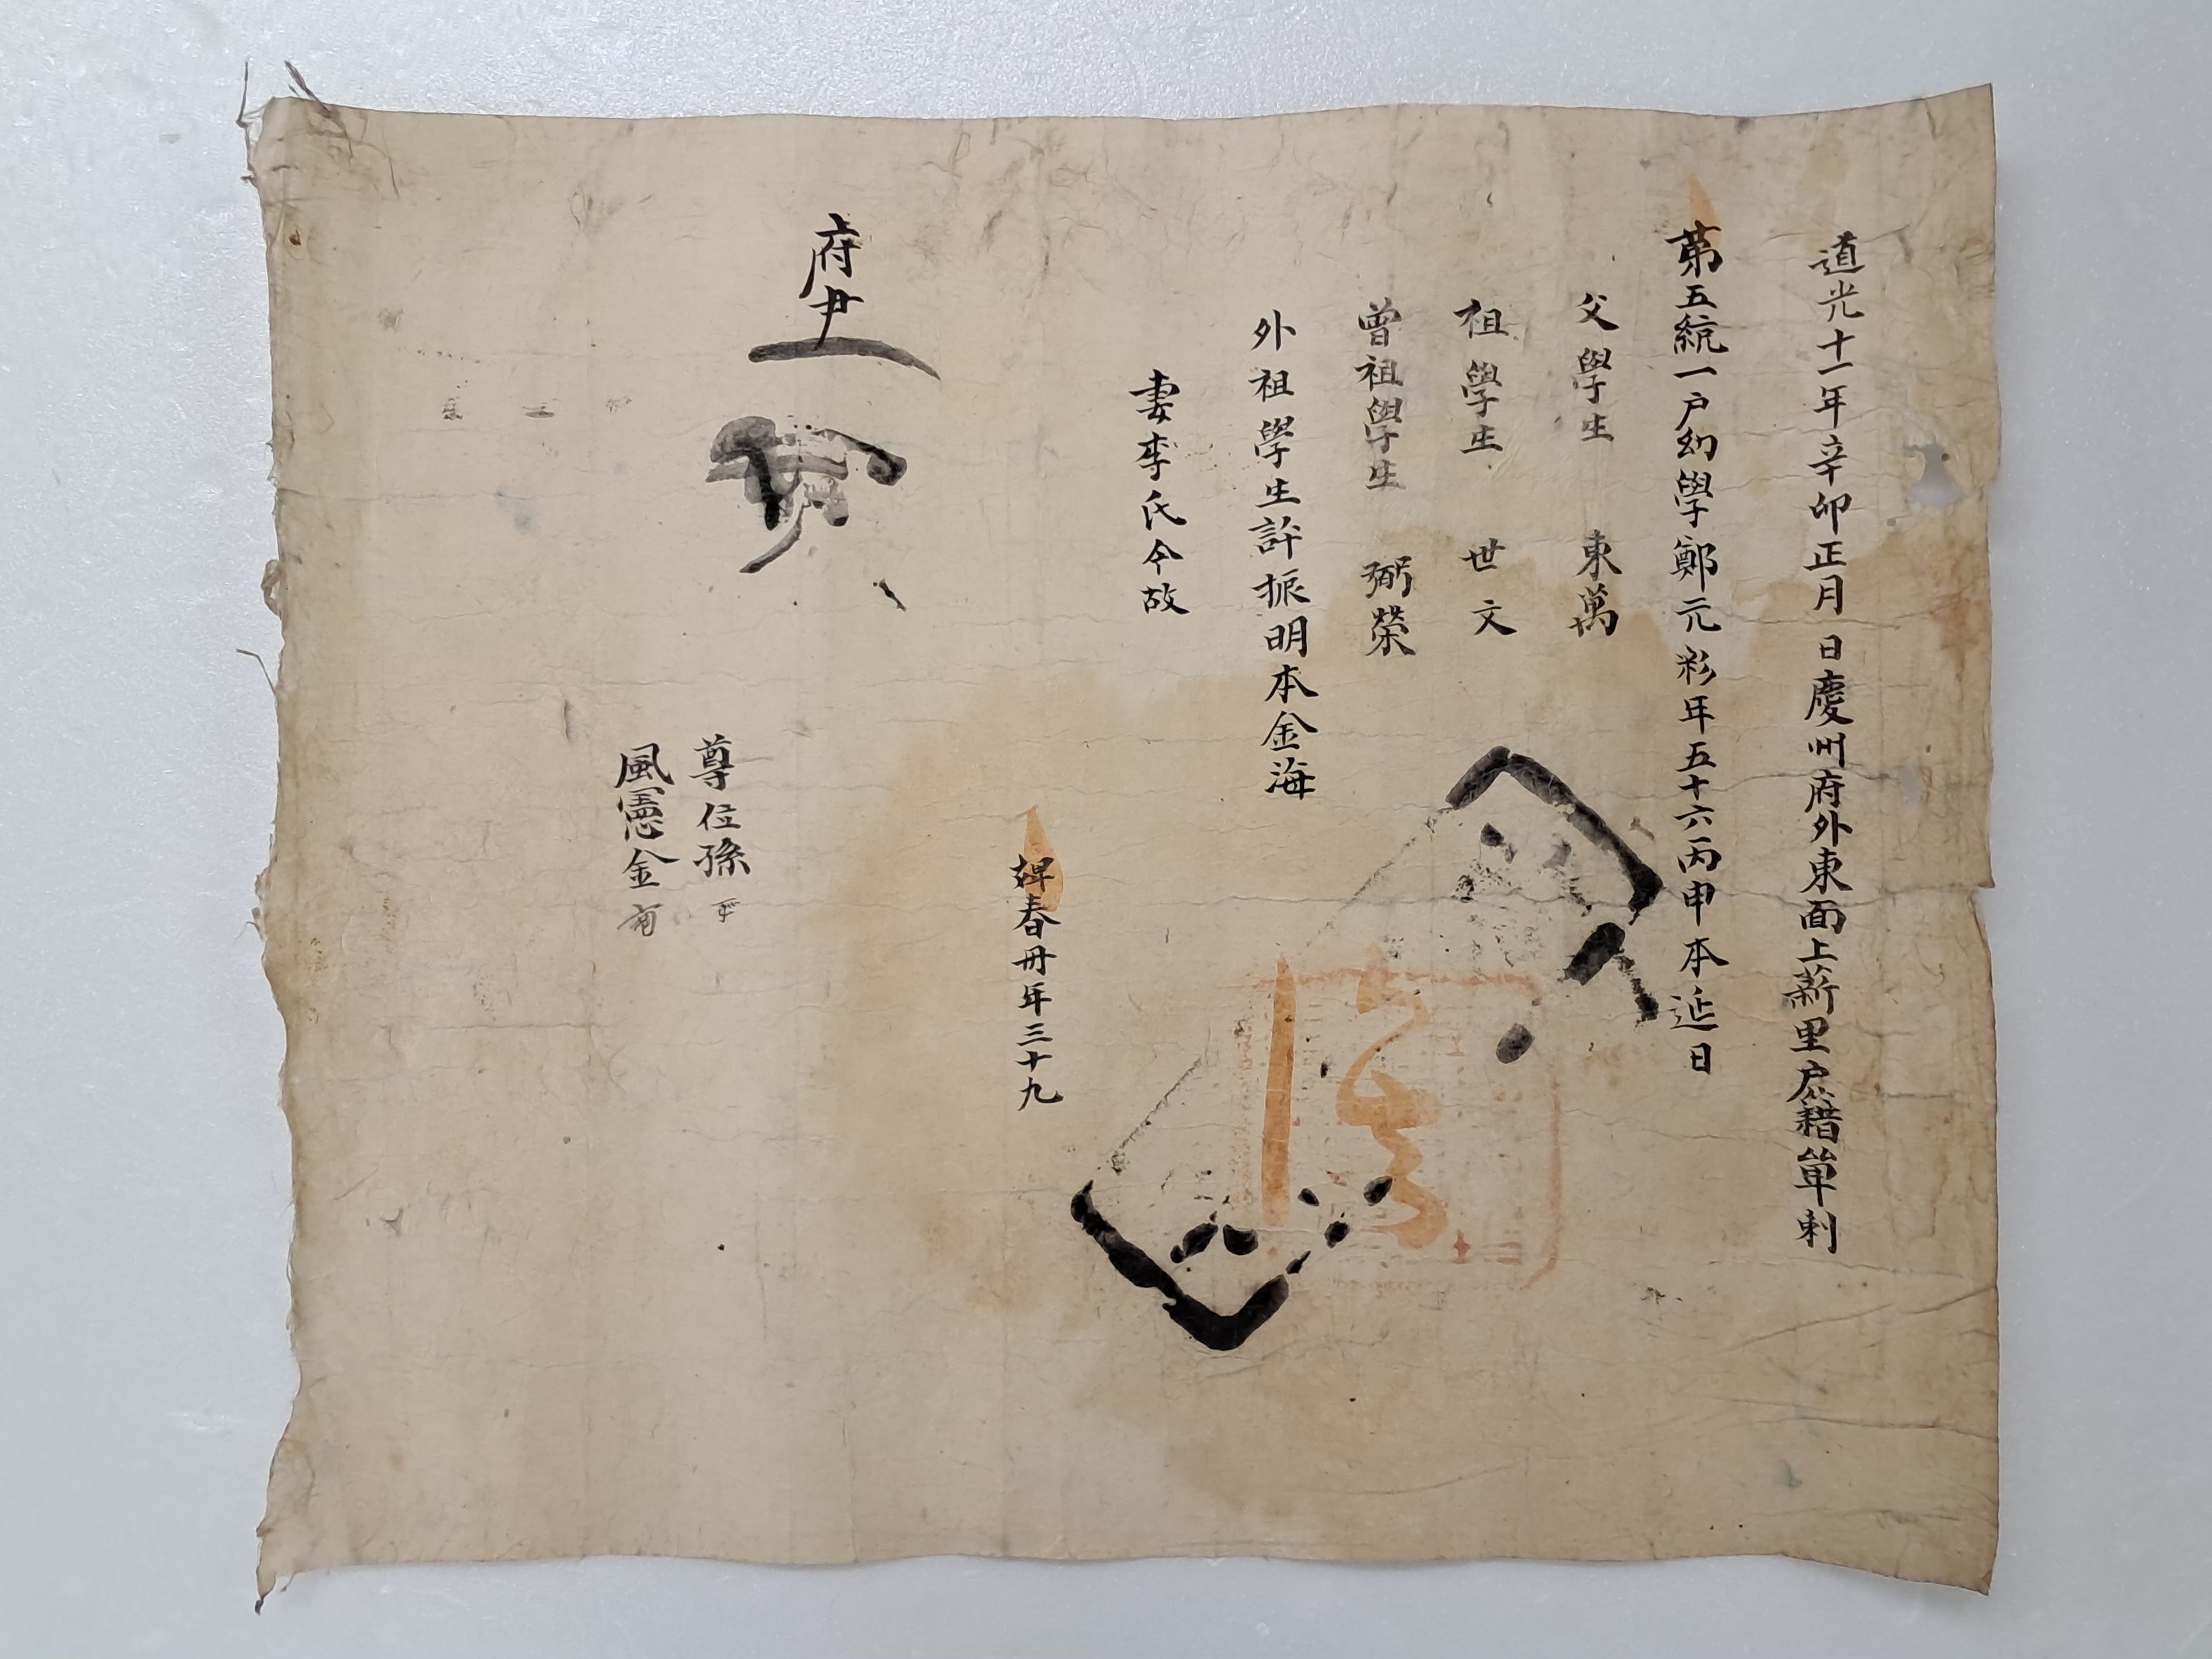 道光十一年辛卯正月 日慶州府外東面上薪里戶籍單刺
第五統一戶幼學鄭元彩年五十六丙申本延日
父學生 東萬
祖學生 世文
曾祖學生 弼榮
外祖學生許振明本金海
妻李氏今故
婢春丹年三十九
府尹
尊位孫
風憲金